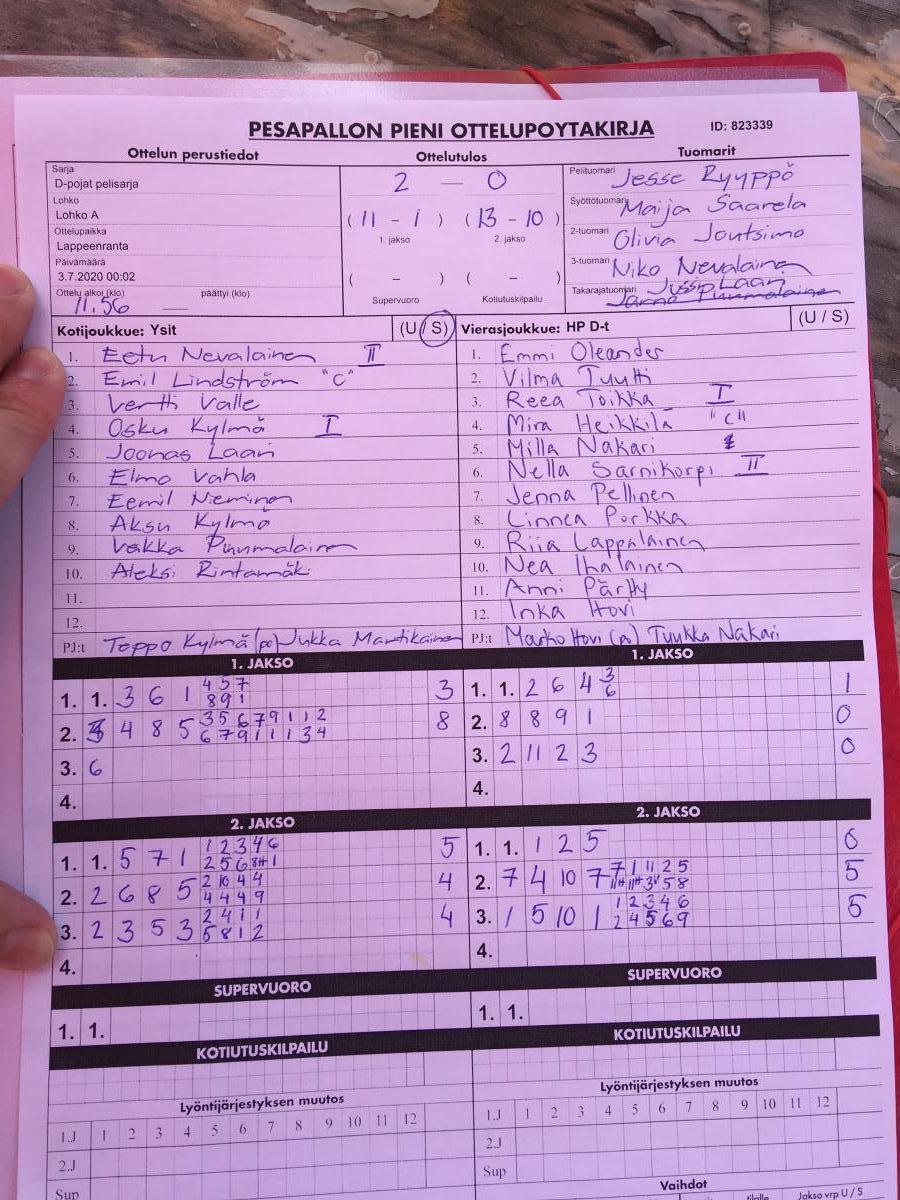 PESAPALLON PIENI OTTELUPOYTAKIRJA ID: 823339
Ottelun perustiedot Ottelutulos Tuomarit
Sarja
D-pojat pelisarja
Lohko
Lohko A
Ottelupaikka
Lappeenranta
Päivämäärä
3.7.2020 00:02
Ottelu alkoi (klo) 11.56 päättyi (klo) —
2 — 0
( 11 - 1 ) ( 13 - 10 )
1. jakso 2. jakso
( - ) ( - )
Supervuoro Kotiutuskilpailu
Pelituomari Jesse Ryyppö
Syöttötuomari Maija Saarela
2-tuomari Olivia Joutsimo
3-tuomari Niko Nevalainen
Takarajatuomari Jussi Laari
Jarno Puumalainen
Kotijoukkue: Ysit (U / S) Vierasjoukkue: HP D-t (U / S)
1. Eetu Nevalainen II 1. Emmi Oleander
2. Emil Lindström "C" 2. Vilma Tuutti
3. Vertti Valle 3. Reea Toikka I
4. Osku Kylmä I 4. Mira Heikkilä "C"
5. Joonas Laari 5. Milla Nakari
6. Elmo Vahla 6. Nella Sarnikorpi II
7. Eemil Nieminen 7. Jenna Pellinen
8. Aksu Kylmä 8. Linnea Porkka
9. Veikka Puumalainen 9. Riia Lappalainen
10. Aleksi Rintamäki 10. Nea Ihalainen
11. 11. Anni Pärtty
12. 12. Inka Hovi
PJ:t Teppo Kylmä (po) Jukka Mantikainen PJ:t Marko Hovi (po) Tuukka Nakari
1. JAKSO 1. JAKSO
1. 1. 3 6 1 4 5 7 3 1. 1. 2 6 4 3 1
8 9 1 6
2. 3 4 8 5 3 5 6 7 9 1 1 2 8 2. 8 8 9 1 0
6 7 9 1 1 1 3 4
3. 6 3. 2 11 2 3 0
4. 4.
2. JAKSO 2. JAKSO
1. 1. 5 7 1 1 2 3 4 6 5 1. 1. 1 2 5 0
2 5 6 8H 1
2. 2 6 8 5 2 10 4 4 4 2. 7 4 10 7 7 1 11 2 5 5
4 4 4 9 11H 11H 3V 5 8
3. 2 3 5 3 2 4 1 1 4 3. 1 5 10 1 1 2 3 4 6 5
5 8 1 2 2 4 5 6 9
4. 4.
SUPERVUORO SUPERVUORO
1. 1. 1. 1.
KOTIUTUSKILPAILU KOTIUTUSKILPAILU
Lyöntijärjestyksen muutos Lyöntijärjestyksen muutos
1.J 1 2 3 4 5 6 7 8 9 10 11 12 1.J 1 2 3 4 5 6 7 8 9 10 11 12
2.J 2.J
Sup Sup
Vaihdot
tilalle Jakso vrp U / S